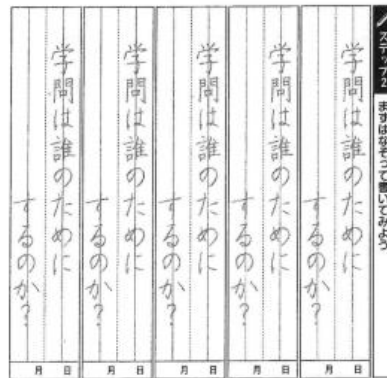 ステップ2 まずはなぞって書いてみよう
学問は誰のために
するのか?
月 日
学問は誰のために
するのか?
月 日
学問は誰のために
するのか?
月 日
学問は誰のために
するのか?
月 日
学問は誰のために
するのか?
月 日